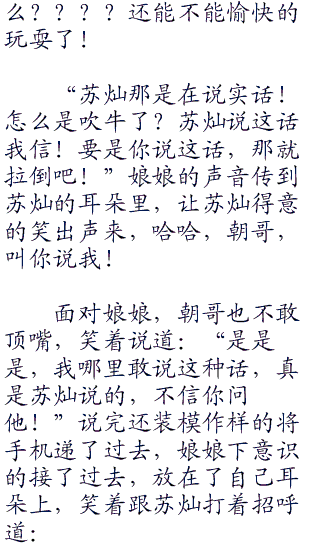 么？？？？还能不能愉快的
玩耍了！
“苏灿那是在说实话！
怎么是吹牛了？苏灿说这话
我信！要是你说这话，那就
拉倒吧！”娘娘的声音传到
苏灿的耳朵里，让苏灿得意
的笑出声来，哈哈，朝哥，
叫你说我！
面对娘娘，朝哥也不敢
顶嘴，笑着说道：“是是
是，我哪里敢说这种话，真
是苏灿说的，不信你问
他！”说完还装模作样的将
手机递了过去，娘娘下意识
的接了过去，放在了自己耳
朵上，笑着跟苏灿打着招呼
道：